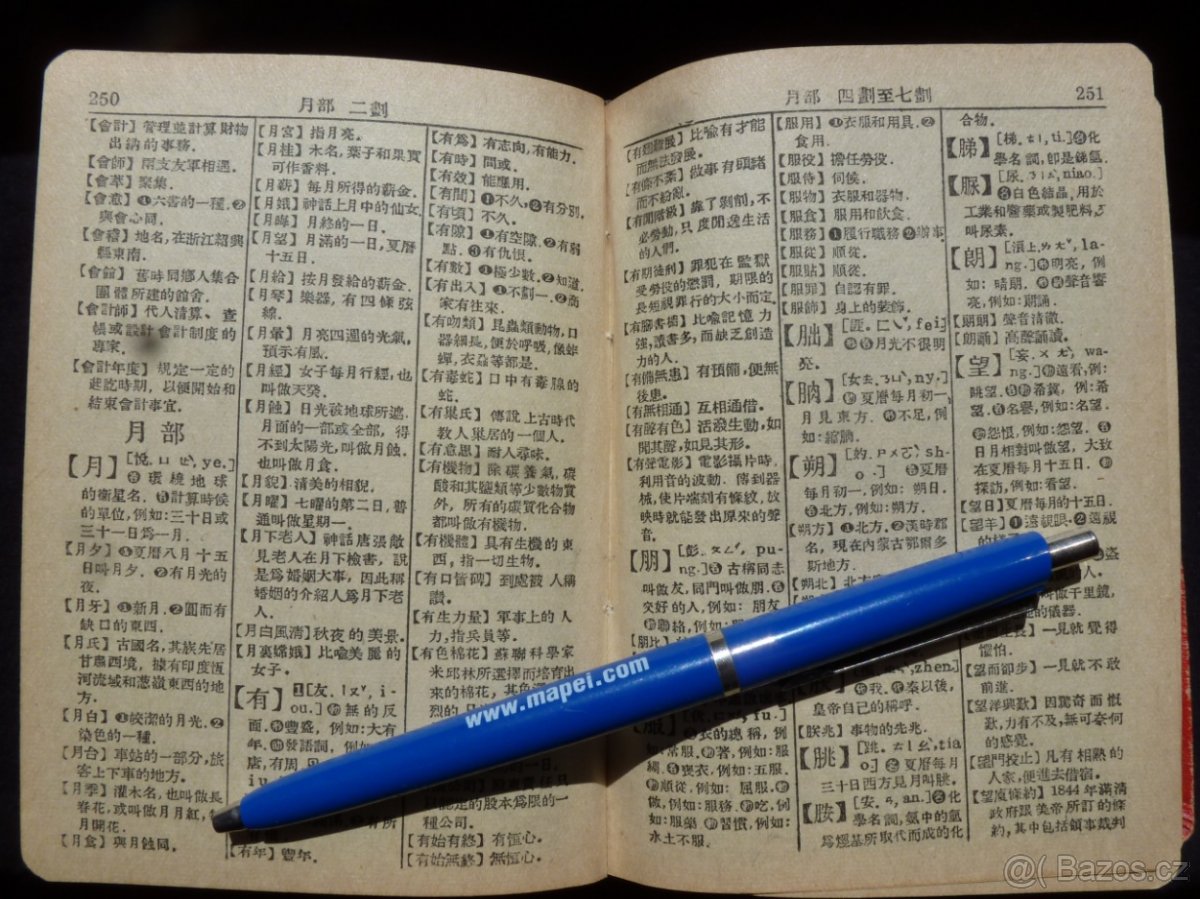 250
月部 二劃
【會計】管理並計算財物
出納的事務.
【會師】兩支友軍相遇.
【會萃】聚集.
【會意】❶六書的一種.❷
與會心同.
【會稽】地名,在浙江紹興
縣東南.
【會館】舊時同鄉人集合
團體所建的館舍.
【會計師】代人清算、查
帳或設計會計制度的
專家.
【會計年度】規定一定的
起訖時期,以便開始和
結束會計事宜.
月部
【月】[悅.ㄩㄝ,ye.]
環境地球
的衛星名.計算時候
的單位,例如:三十日或
三十一日爲一月.
【月夕】❶夏曆八月十五
日叫月夕.❷有月光的
夜.
【月牙】❶新月.❷圓而有
缺口的東西.
【月氏】古國名,其族先居
甘肅西境,據有印度恆
河流域和葱嶺東西的地
方.
【月白】❶皎潔的月光.❷
染色的一種.
【月台】車站的一部分,旅
客上下車的地方.
【月季】灌木名,也叫做長
春花,或叫做月月紅,
月開花.
【月食】與月蝕同.
【月宮】指月亮.
【月桂】木名,葉子和果實
可作香料.
【月薪】每月所得的薪金.
【月娥】神話上月中的仙女.
【月晦】月終的一日.
【月望】月滿的一日,夏曆
十五日.
【月給】按月發給的薪金.
【月琴】樂器,有四條弦
線.
【月暈】月亮四週的光氣,
預示有風.
【月經】女子每月行經,也
叫做天癸.
【月蝕】日光被地球所遮,
月面的一部或全部,得
不到太陽光,叫做月蝕,
也叫做月食.
【月貌】清美的相貌.
【月曜】七曜的第二日,普
通叫做星期一.
【月下老人】神話唐張敵
見老人在月下檢書,說
是爲婚姻大事,因此稱
婚姻的介紹人爲月下老
人.
【月白風清】秋夜的美景.
【月裏嫦娥】比喻美麗的
女子.
【有】[友.ㄧㄡˇ,i-
ou.]無的反
面.豐盛,例如:大有
年.發語詞,例如
唐,有周
iu
【有年】豐年.
【有爲】有志向,有能力.
【有時】間或.
【有效】能應用.
【有間】❶不久,❷有分別.
【有頃】不久.
【有隙】❶有空隙.❷有弱
點.❸有仇恨.
【有數】❶極少數.❷知道.
【有出入】❶不劃一.❷商
家有往來.
【有吻類】昆蟲類動物,口
器細長,便於呼吸,像蚌
蟬,衣蝨等都是.
【有毒蛇】口中有毒腺的
蛇.
【有巢氏】傳說上古時代
敎人巢居的一個人.
【有意思】耐人尋味.
【有機物】除碳養氣,碳
酸和其鹽類等少數物質
外,所有的碳質化合物
都叫做有機物.
【有機體】具有生機的東
西,指一切生物.
【有口皆碑】到處被人稱
讚.
【有生力量】軍事上的人
力,指兵員等.
【有色棉花】蘇聯科學家
米邱林所選擇而培育出
來的棉花,其色
烈的
定的股本爲限的一
種公司.
【有始有終】有恆心.
【有始無終】無恆心.
月部 四劃至七劃
251
比喻有才能
而無法發展.
【有條不紊】做事有頭緒
而不紛亂.
【有閒階級】靠了剝削,不
必勞動,只度閒逸生活
的人們.
【有期徒刑】罪犯在監獄
受勞役的懲罰,期限的
長短視罪行的大小而定.
【有腳書櫥】比喻記憶力
強,讀書多,而缺乏創造
力的人.
【有備無患】有預備,便無
後患.
【有無相通】互相通借.
【有聲有色】活發生動,如
聞其聲,如見其形.
【有聲電影】電影攝片時,
利用音的波動,傳到器
械,使片端刻有條紋,放
映時就能發出原來的聲
音.
【朋】[彭.ㄆㄥˊ,pu-
ng.]古稱同志
叫做友,同門叫做朋.
交好的人,例如:朋友
聯絡,例
【朋比
【服】
iu.]
衣的總稱,例
如:常服.著,例如:服
綢.喪衣,例如:五服.
順從,例如:屈服.
做,例如:服務.吃,例
如:服藥.習慣,例如:
水土不服.
【服用】❶衣服和用具.❷
食用.
【服役】擔任勞役.
【服侍】伺候.
【服物】衣服和器物.
【服食】服用和飲食.
【服務】❶履行職務.❷辦事.
【服從】順從.
【服貼】順從.
【服罪】自認有罪.
【服飾】身上的裝飾.
【朏】[匪.ㄈㄟˇ,fei]
月光不很明
亮.
【朒】[女去.ㄋㄩˋ,ny,]
夏曆每月初一,
月見東方.不足,例
如:縮朒.
【朔】sh-
o.]夏曆
每月初一,例如:朔日.
北方,例如:朔方.
【朔方】❶北方.❷漢時郡
名,現在內蒙古鄂爾多
斯地方.
【朔北】北方
zhen.]
我.秦以後,
皇帝自己的稱呼.
【朕兆】事物的先兆.
【朓】[跳.ㄊㄧㄠ,tia
o]夏曆每月
三十日西方見月叫朓.
【胺】[安.ㄢ,an.]化
學名詞,氨中的氫
爲烴基所取代而成的化
合物.
【䏲】[梯.ㄊㄧ,ti.]化
學名詞,卽是銻氫.
【脲】[尿.ㄋㄧㄠ,niao.]
白色結晶,用於
工業和醫藥或製肥料,
叫尿素.
【朗】[浪上.ㄌㄤˇ,la-
ng.]明亮,例
如:晴朗.聲音響
亮,例如:朗誦.
【朗朗】聲音清徹.
【朗誦】高聲誦讀.
【望】[妄.ㄨㄤˋ,wa-
ng.]遠看,例:
眺望.希冀,例:希
望.名譽,例如:名望.
怨恨,例如:怨望.
日月相對叫做望,大致
在夏曆每月十五日.
探訪,例如:看望.
【望日】夏曆每月的十五日.
【望羊】❶遠視眼.❷遠視
的樣子
叫做千里鏡,
的儀器.
一見就覺得
懼怕.
【望而卻步】一見就不敢
前進.
【望洋興歎】因驚奇而慨
歎,力有不及,無可奈何
的感覺.
【望門投止】凡有相熟的
人家,便進去借宿.
【望廈條約】1844年滿清
政府跟美帝所訂的條
約,其中包括領事裁判
www.mapei.com
@( Bazos.cz